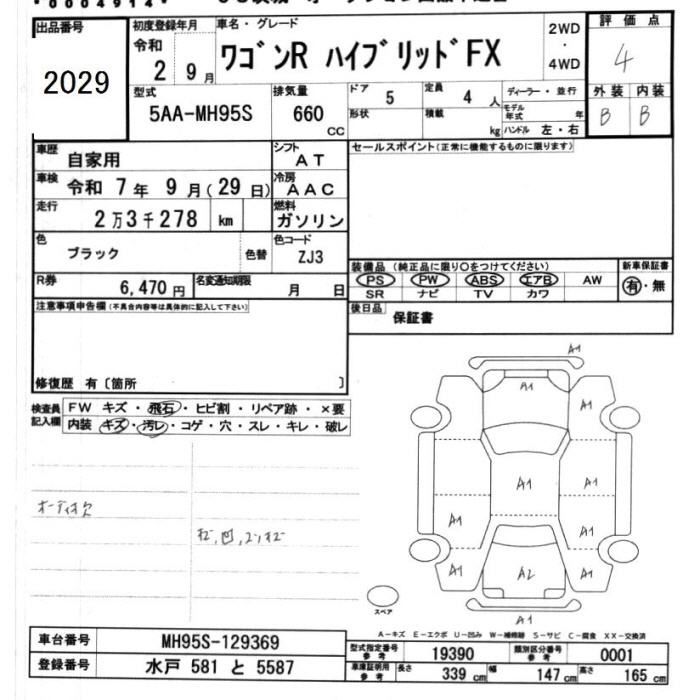 *0004914*
出品番号
2029
初度登録年月
令和
2 9月
車名・グレード
ワゴンR ハイブリッドFX
2WD
・
4WD
評価点
4
外装 内装
B B
型式
5AA-MH95S
排気量
660
CC
ドア
5
定員
4 人
形状
積載
kg
ディーラー・並行
モデル年式 年
ハンドル 左・右
車歴
自家用
シフト
AT
車検
令和 7年 9月(29日)
冷房
AAC
走行
2万3千278 km
燃料
ガソリン
色
ブラック
色替
色コード
ZJ3
R券
6,470円
名変通知期限
月 日
セールスポイント(正常に機能するものに限ります)
装備品 (純正品に限り○をつけてください)
PS PW ABS エアB AW
SR ナビ TV カワ
新車保証書
有・無
後日品
保証書
注意事項申告欄(不具合内容等は具体的に記入して下さい)
修復歴 有〔箇所 〕
検査員
記入欄
FW キズ・飛石・ヒビ割・リペア跡・×要
内装 キズ・汚レ・コゲ・穴・スレ・キレ・破レ
オーディオ欠
A1
A1
A1
A1
A1
A1
A1
A1
A2
A1
A1
スペア
A-キズ E-エクボ U-凹み W-補修跡 S-サビ C-腐食 XX-交換済
車台番号
MH95S-129369
登録番号
水戸 581 と 5587
型式指定番号
参考
19390
類別区分番号
参考
0001
車庫証明用
参考
長さ
339 cm
幅
147 cm
高さ
165 cm